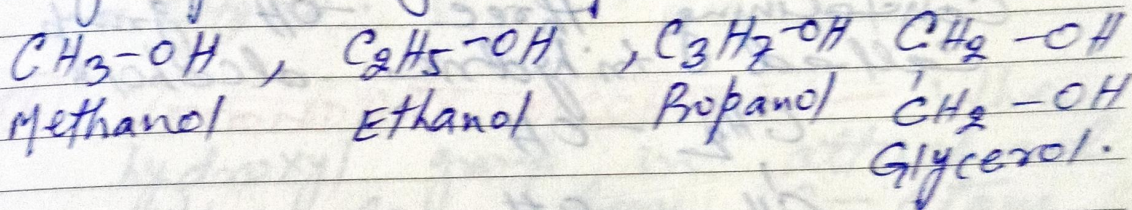 CH3-OH , C2H5-OH , C3H7-OH CH2-OH
Methanol Ethanol Propanol CH2-OH
Glycerol.